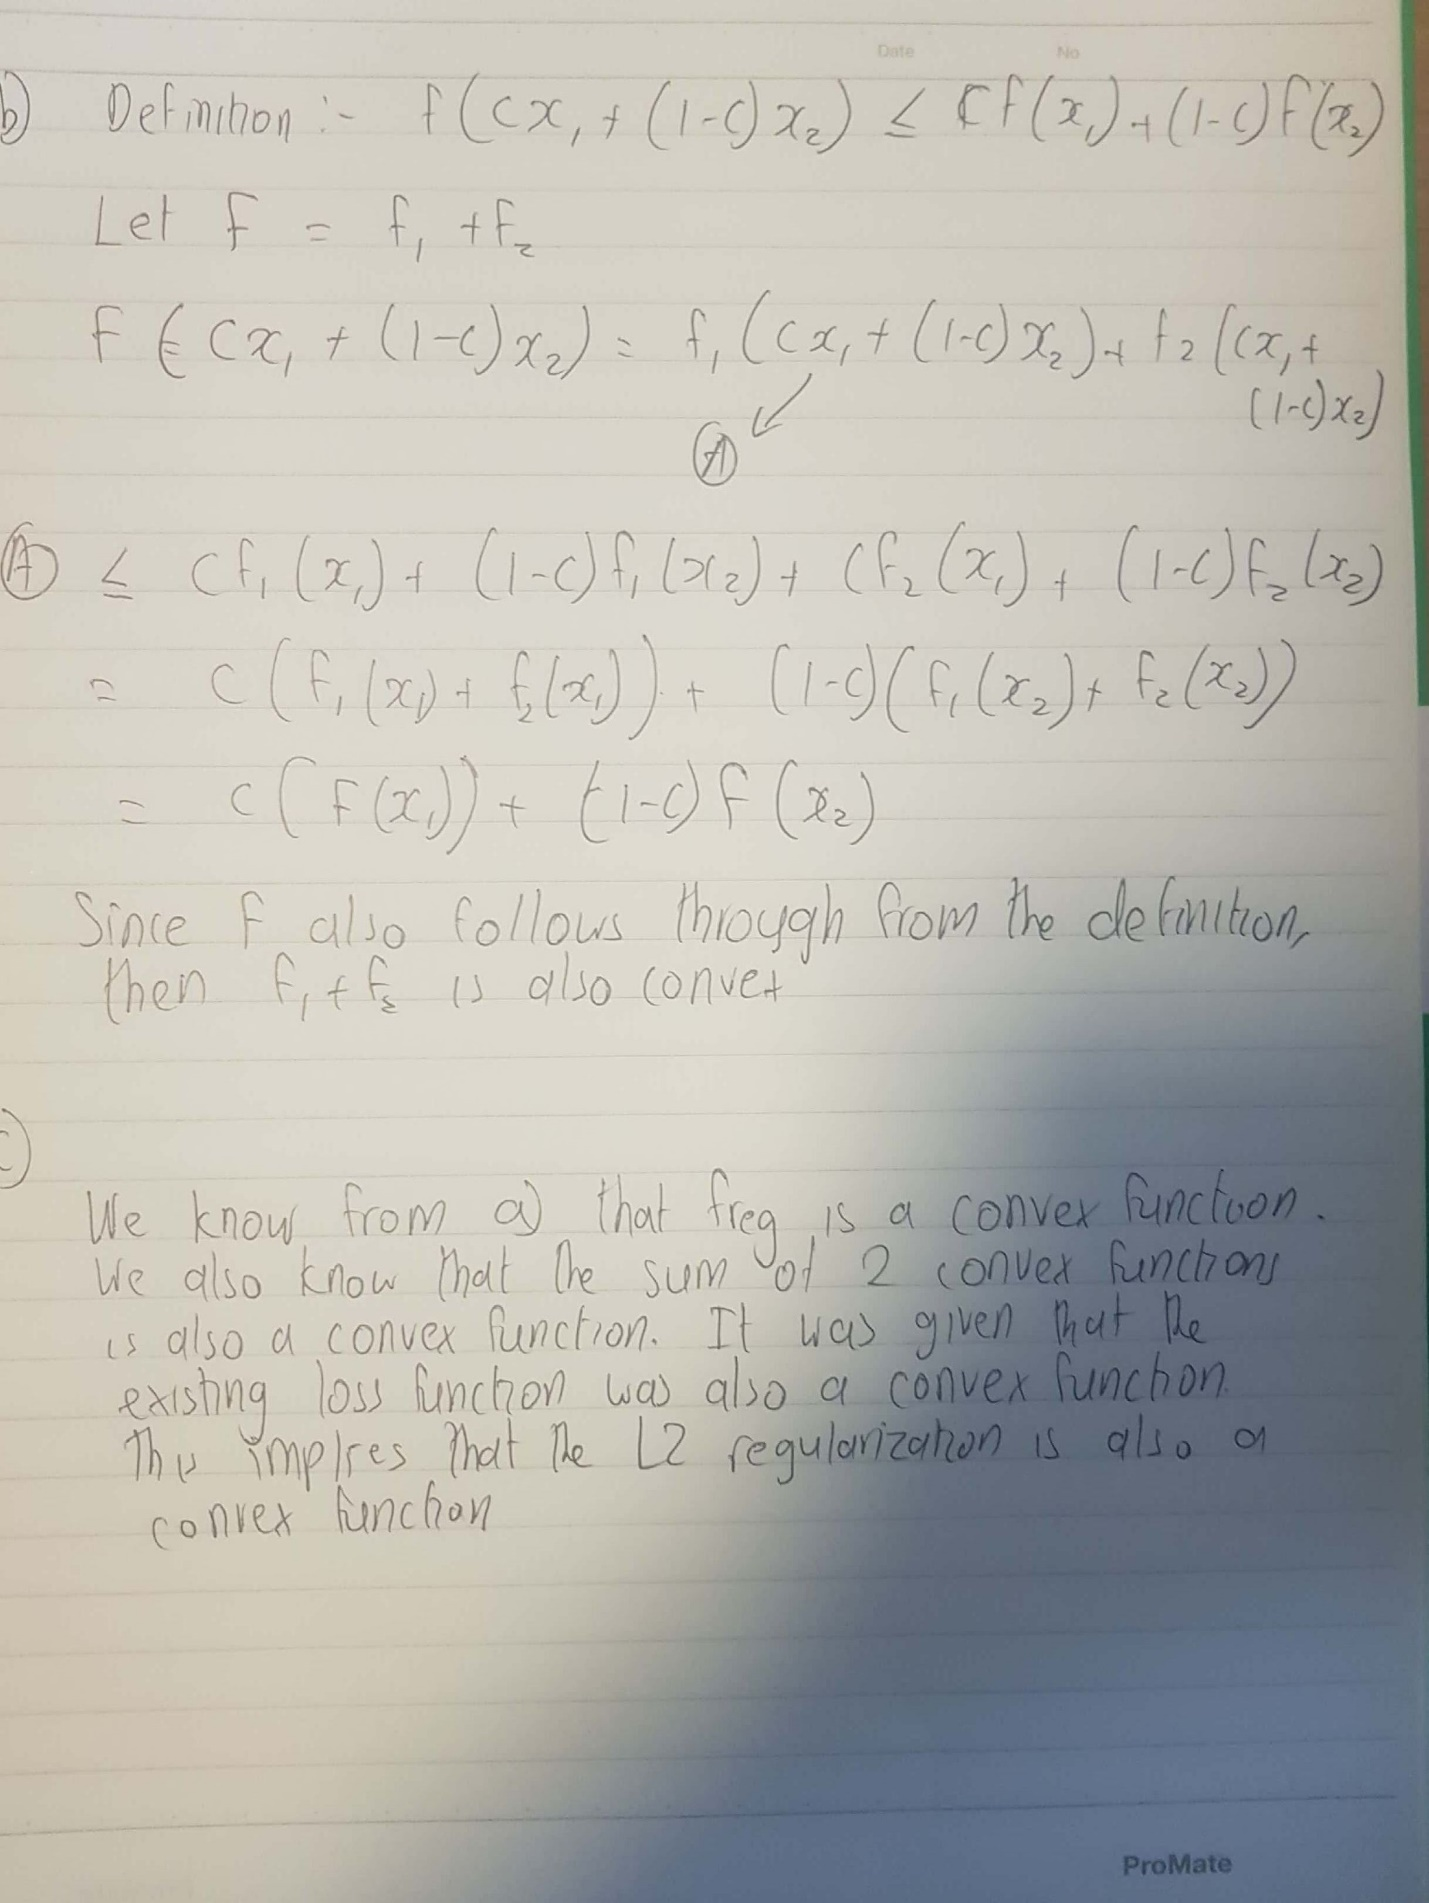 Date No
b) Definition :- f(cx₁ + (1-c)x₂) ≤ cf(x₁) + (1-c)f(x₂)
Let F = f₁ + f₂
F(cx₁ + (1-c)x₂) = f₁(cx₁ + (1-c)x₂) + f₂(cx₁ +
(1-c)x₂)
Ⓐ
Ⓐ ≤ cf₁(x₁) + (1-c)f₁(x₂) + cf₂(x₁) + (1-c)f₂(x₂)
= c(f₁(x₁) + f₂(x₁)) + (1-c)(f₁(x₂) + f₂(x₂))
= c(F(x₁)) + (1-c)F(x₂)
Since F also follows through from the definition,
then f₁ + f₂ is also convex
c)
We know from a) that freg is a convex function.
We also know that the sum of 2 convex functions
is also a convex function. It was given that the
existing loss function was also a convex function.
This implies that the L2 regularization is also a
convex function
ProMate